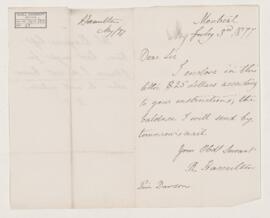 Hamilton
Montreal
July 3rd, 1877
Dear Sir
I enclose in this
letter $25 dollars according
to your instructions, the
balance I will send by
tomorrow's mail.
Your Obdt Servant
R. Hamilton
Prin Dawson